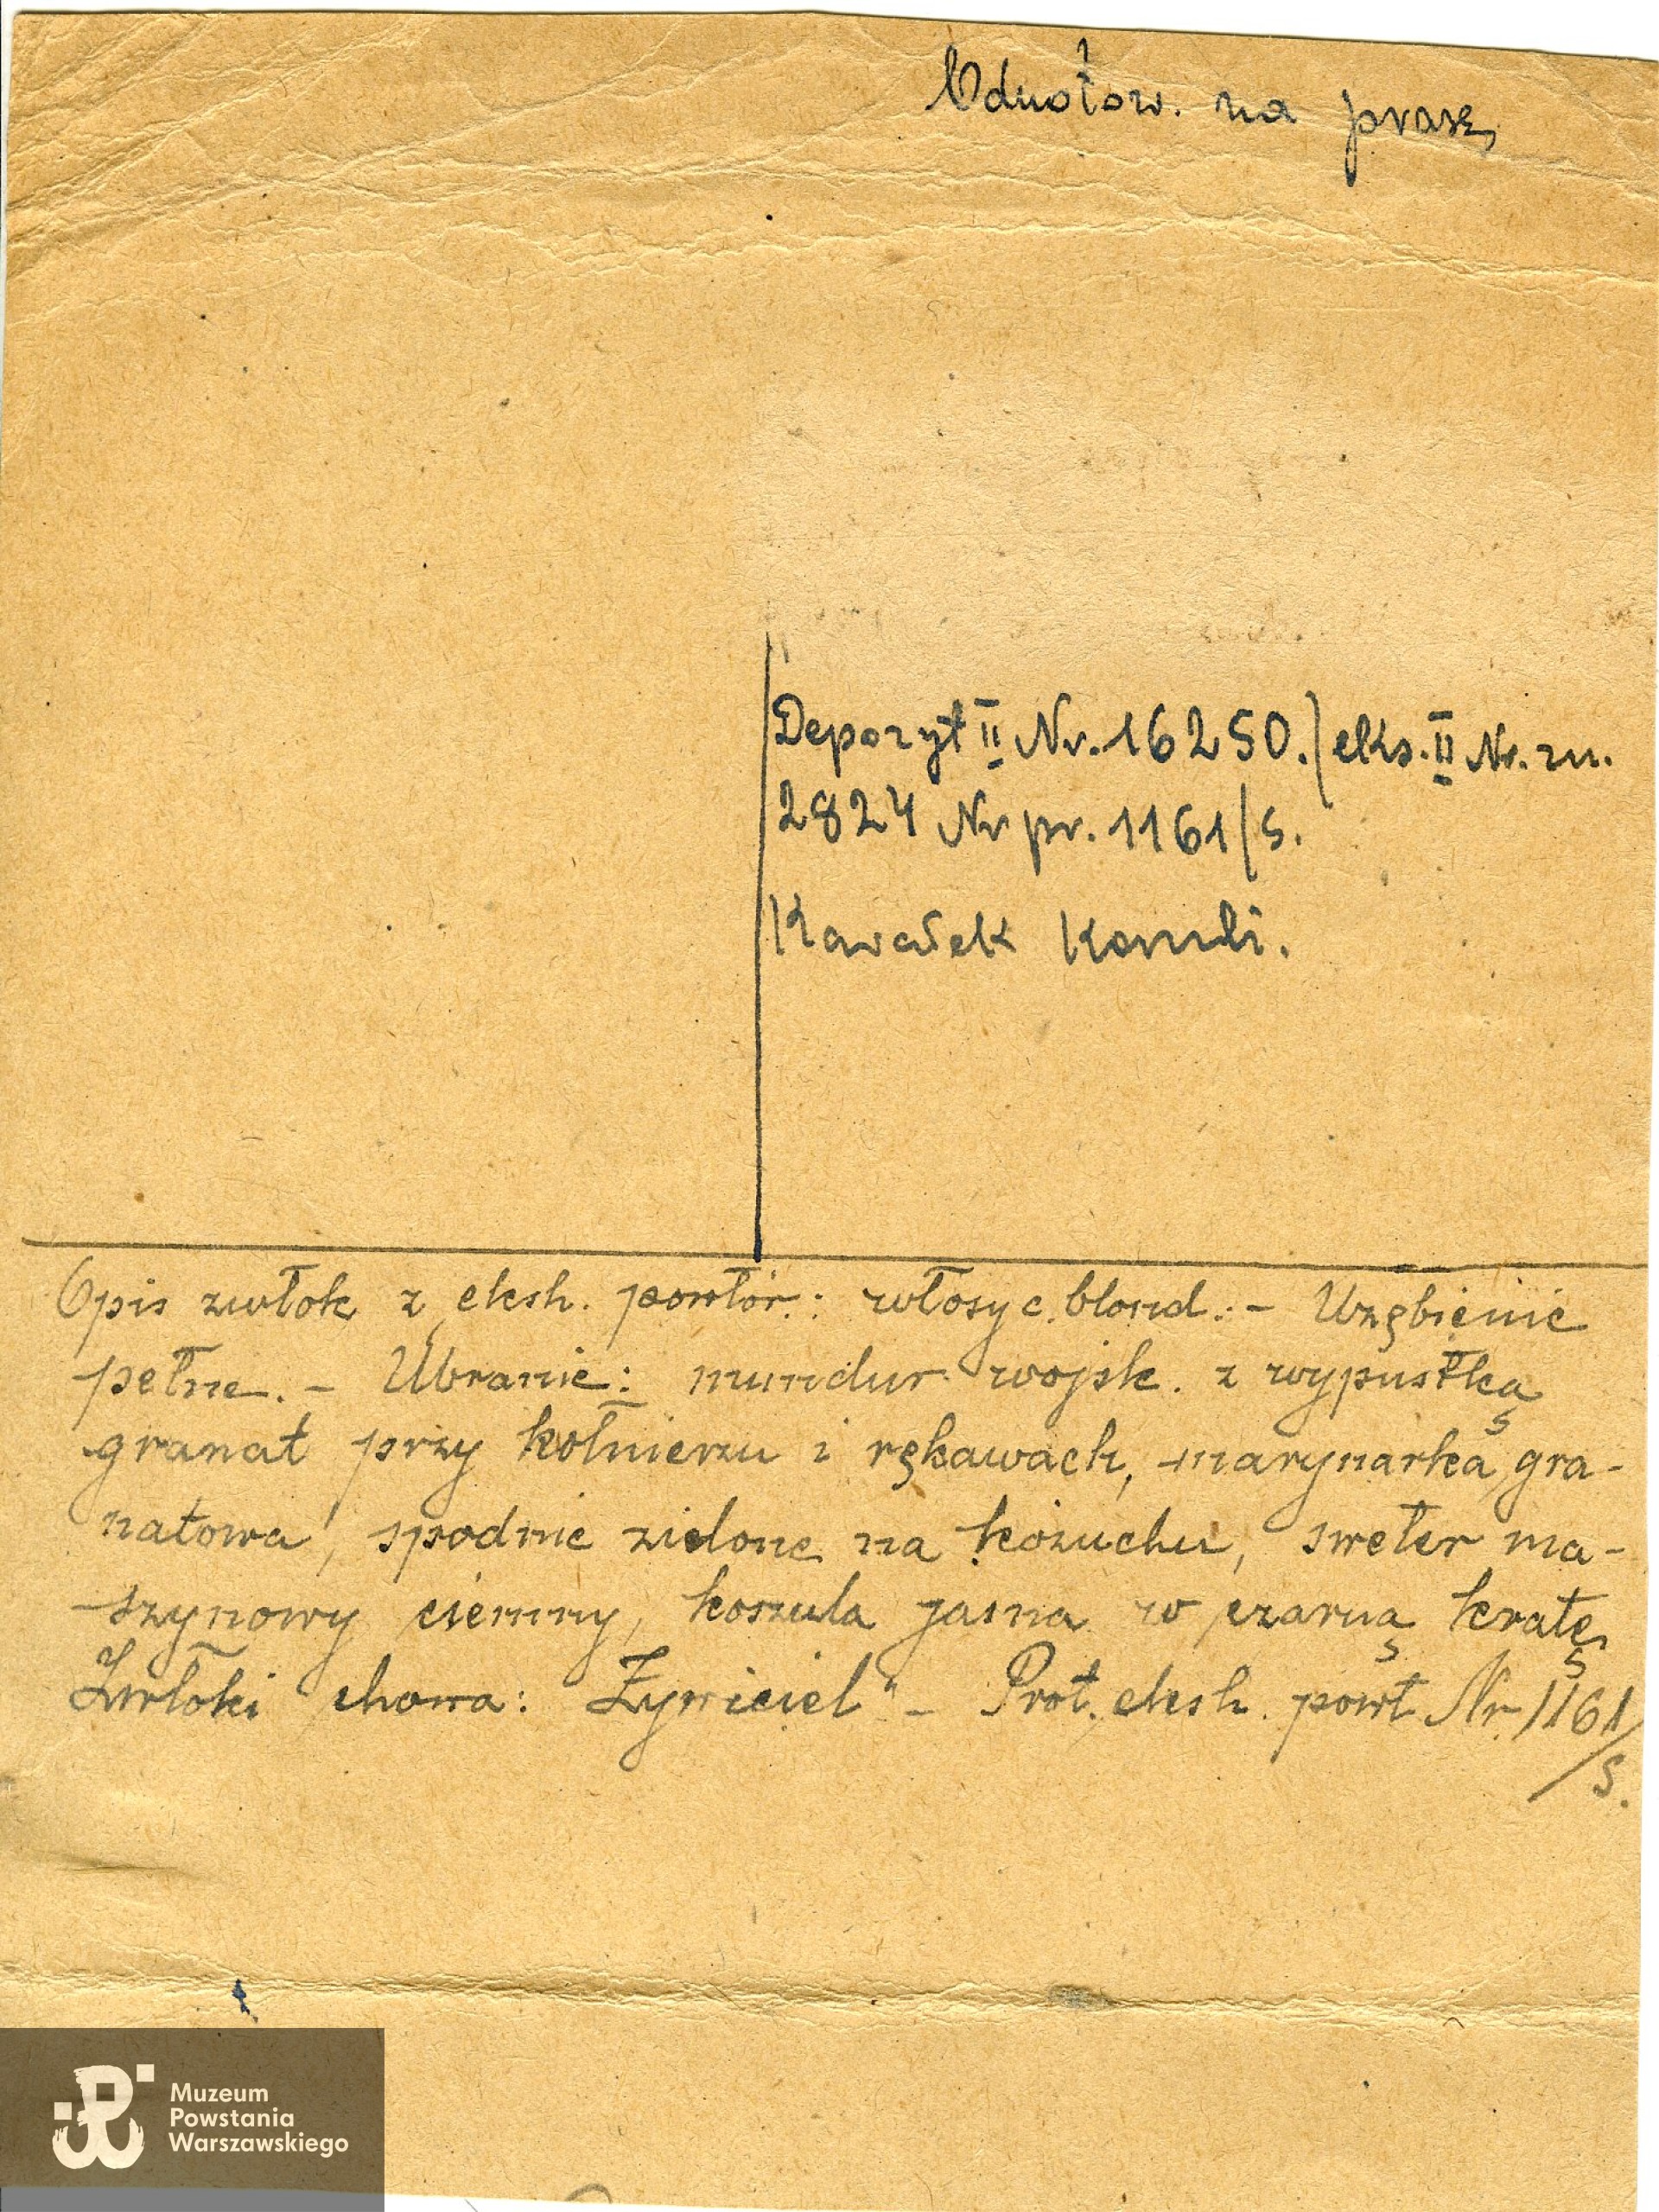 Odnotow. na prasę
Depozyt II Nr. 16250./eks. II Nr. zw.
2824 Nr pr. 1161/s.
Kawałek
Opis zwłok z eksh. powtór.: włosy c. blond. - Uzębienie
pełne. - Ubranie: mundur wojsk. z wypustką
granat przy kołnierzu i rękawach, marynarka gra-
natowa, spodnie zielone na kożuchu, sweter ma-
szynowy ciemny, koszula jasna w czarną kratę
Zwłoki chowa: Żywiciel" - Prot. eksh. powt. Nr 1161
/s.
Muzeum
Powstania
Warszawskiego